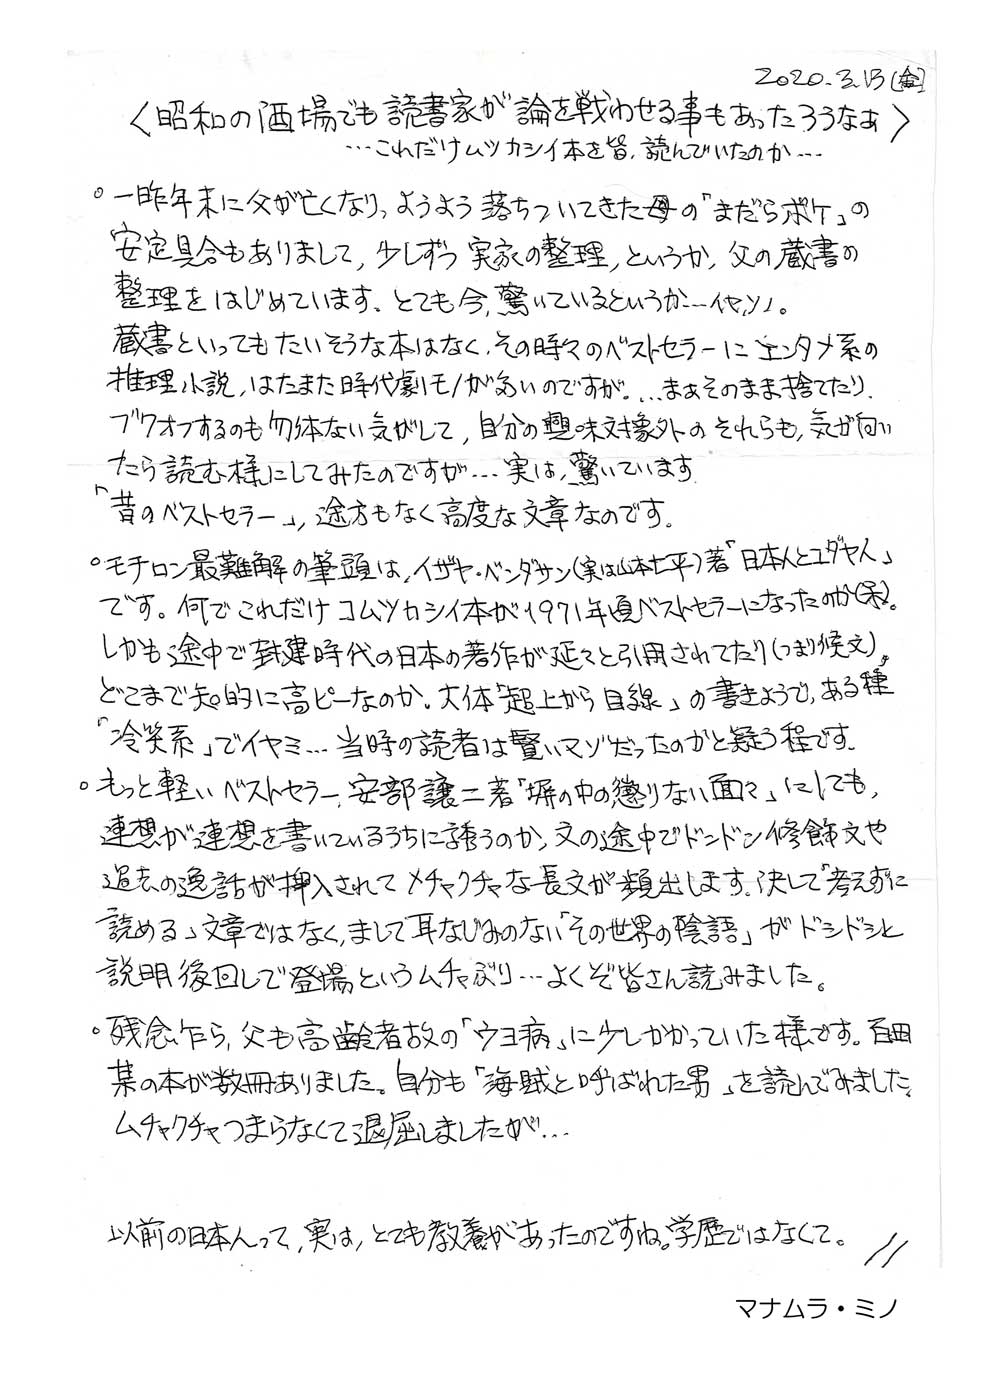 2020.3.13(金)
〈昭和の酒場でも読書家が論を戦わせる事もあったろうなぁ〉
…これだけムツカシイ本を皆、読んでいたのか…
○一昨年末に父が亡くなり、ようよう落ちついてきた母の「まだらボケ」の
安定具合もありまして、少しずつ実家の整理、というか、父の蔵書の
整理をはじめています、とても今、驚いているというか…イヤ、ソノ。
蔵書といってもたいそうな本はなく、その時々のベストセラーにエンタメ系の
推理小説、はたまた時代劇モノが多いのですが。…まぁそのまま捨てたり、
ブクオフするのも勿体ない気がして、自分の興味対象外のそれらも、気が向い
たら読む様にしてみたのですが…実は、驚いています。
「昔のベストセラー」、途方もなく高度な文章なのです。
○モチロン最難解の筆頭は、イザヤ・ベンダサン(実は山本七平)著「日本人とユダヤ人」
です。何でこれだけコムツカシイ本が1971年頃ベストセラーになったのか(呆)。
しかも途中で封建時代の日本の著作が延々と引用されてたり(つまり候文)。
どこまで知的に高ピーなのか。大体「超上から目線」の書きようで、ある種
「冷笑系」でイヤミ…当時の読者は賢いマゾだったのかと疑う程です。
○もっと軽いベストセラー、安部譲二著「塀の中の懲りない面々」にしても、
連想が連想を書いているうちに誘うのか、文の途中でドンドン修飾文や
過去の逸話が挿入されてメチャクチャな長文が頻出します。決して「考えずに
読める」文章ではなく、まして耳なじみのない「その世界の陰語」がドシドシと
説明後回しで登場というムチャぶり…よくぞ皆さん読みました。
○残念乍ら、父も高齢者故の「ウヨ病」に少しかかっていた様です。百田
某の本が数冊ありました。自分も「海賊と呼ばれた男」を読んでみました。
ムチャクチャつまらなくて退屈しましたが…
以前の日本人って、実は、とても教養があったのですね。学歴ではなくて。
マナムラ・ミノ